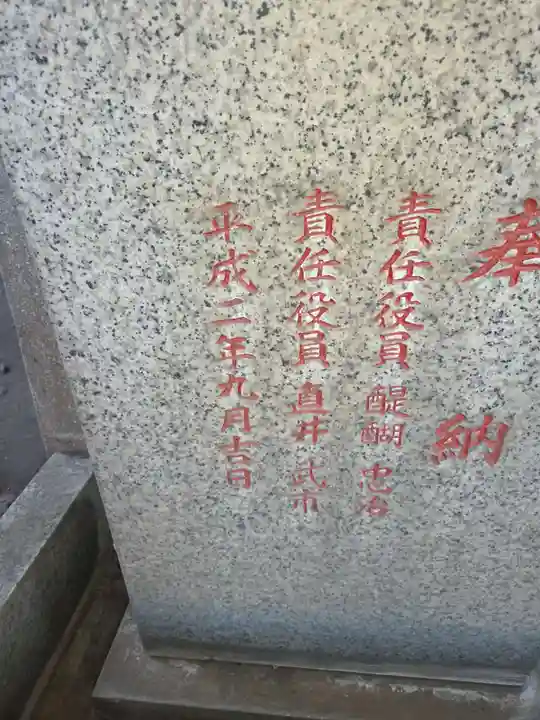 奉納
責任役員 醍醐 忠治
責任役員 直井 武市
平成二年九月吉日